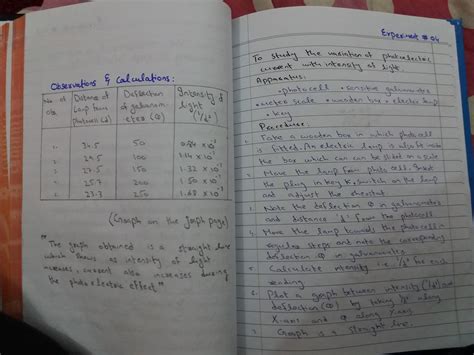 Observations & Calculations:
No. of obs.
Distance of Lamp from photocell (d)
Deflection of galvanometer (Θ)
Intensity of light (1/d²)
1. 34.5 50 0.84 × 10⁻³
2. 29.5 100 1.14 × 10⁻³
3. 27.5 150 1.32 × 10⁻³
4. 25.7 200 1.50 × 10⁻³
5. 23.3 250
(Graph on the graph page)
"The graph obtained is a straight line
which shows as intensity of light
increases, current also increases during
the photoelectric effect"
Experiment # 04
To study the variation of photoelectric
current with intensity of light.
Apparatus:
• photocell • sensitive galvanometer
• meter scale • wooden box • electric lamp
• key
Procedure:
1. Take a wooden box in which photocell
is fitted. An electric lamp is also fix inside
the box which can be slided on a scale
2. Move the lamp from photo cell. Insert
the plug in key K, switch on the lamp
and adjust the rheostat.
3. Note the deflection Θ in galvanometer
and distance 'd' from the photocell
4. Move the lamp towards the photocell in
regular steps and note the corresponding
deflection Θ in galvanometer.
5. Calculate intensity i.e 1/d² for each
reading
6. Plot a graph between intensity (1/d²) and
deflection (Θ) by taking 1/d² along
X-axis and Θ along Y-axis
7. Graph is a straight line.